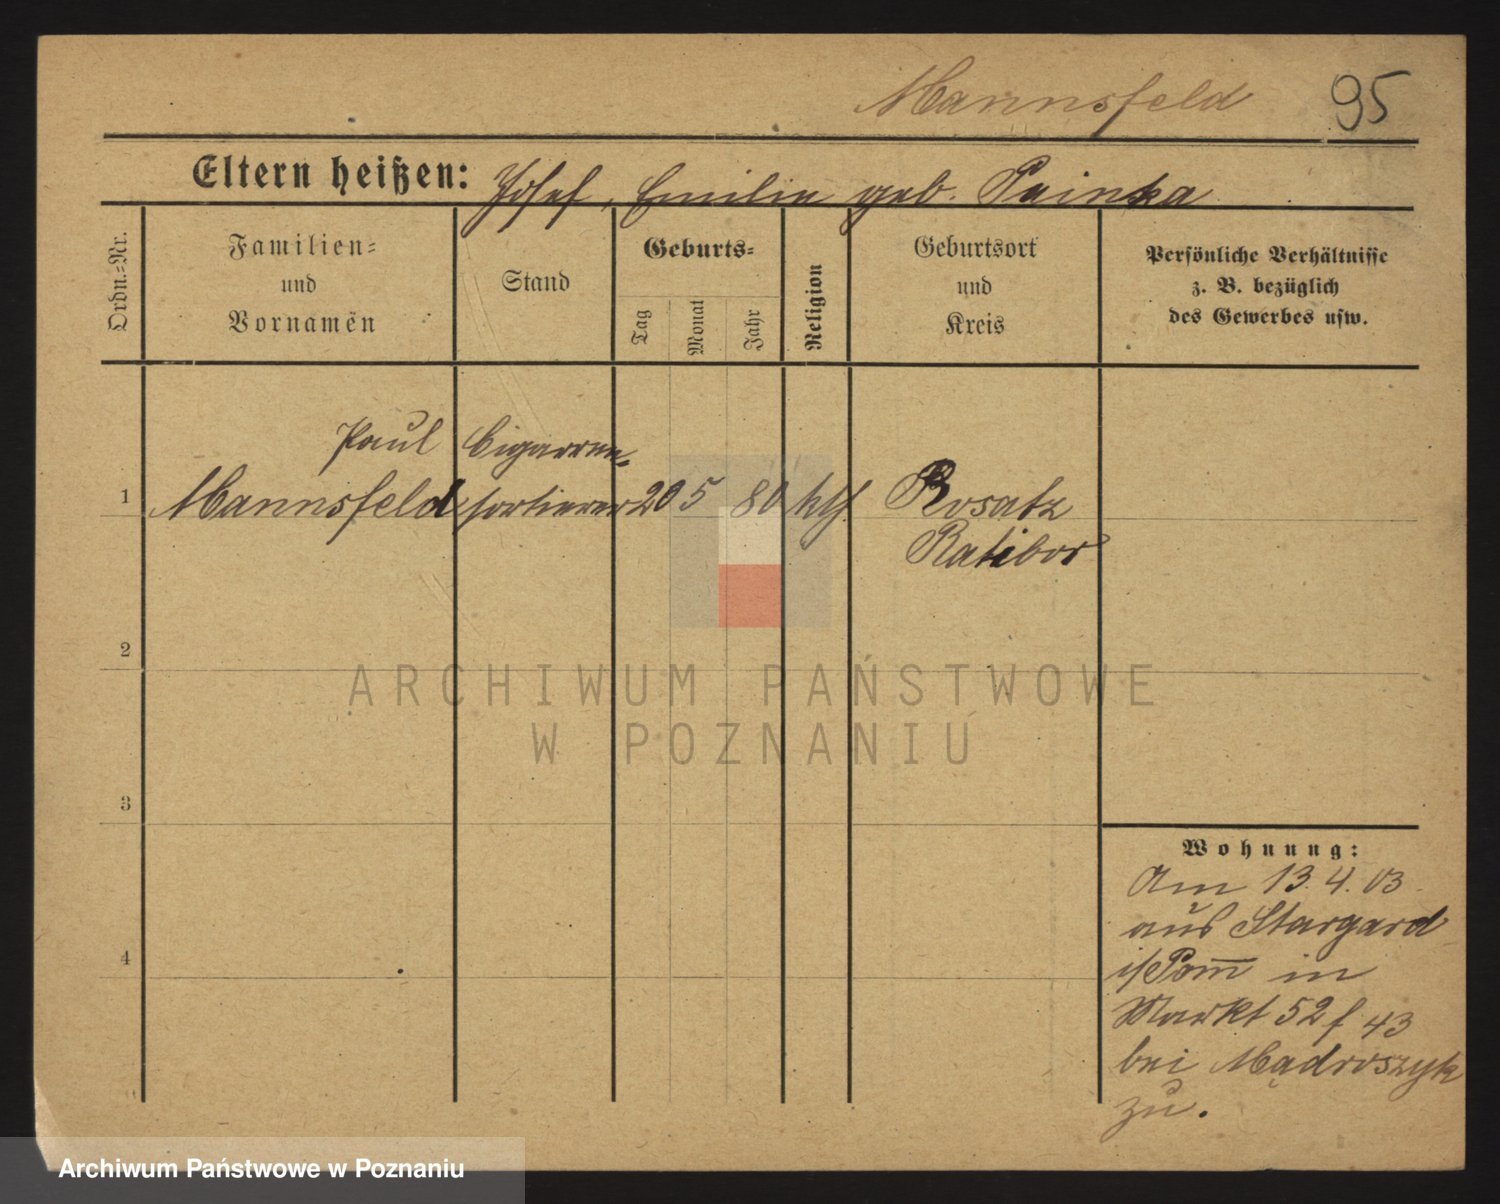 Mannsfeld 95
Eltern heißen: Josef, Emilie geb.
Ordn.=Nr.
Familien=
und
Vornamen
Stand
Geburts=
Tag
Monat
Jahr
Religion
Geburtsort
und
Kreis
Persönliche Verhältnisse
z. B. bezüglich
des Gewerbes usw.
Paul Cigarren-
1 Mannsfeld sortierer 20 5 80 kth. Rosatz
Ratibor
2
3
4
Wohnung:
Am 13.4.03.
aus Stargard
i/Pom̅ in
Markt 52 f 43
bei Mądroszyk
zu.
ARCHIWUM PAŃSTWOWE
W POZNANIU
Archiwum Państwowe w Poznaniu